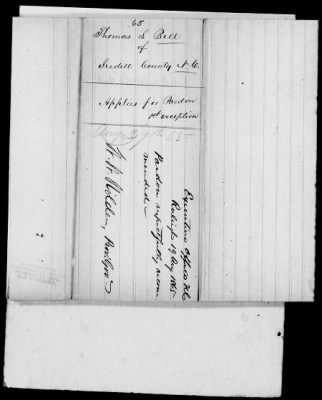 65
Thomas S Bell
of
Iredell County N.C.
Applies for Pardon
1st exception
Augst 9th 65
Executive Office N.C.
Raleigh 19 Aug 1865
Pardon respectfully recom
mended
W. W. Holden, Prov. Gov